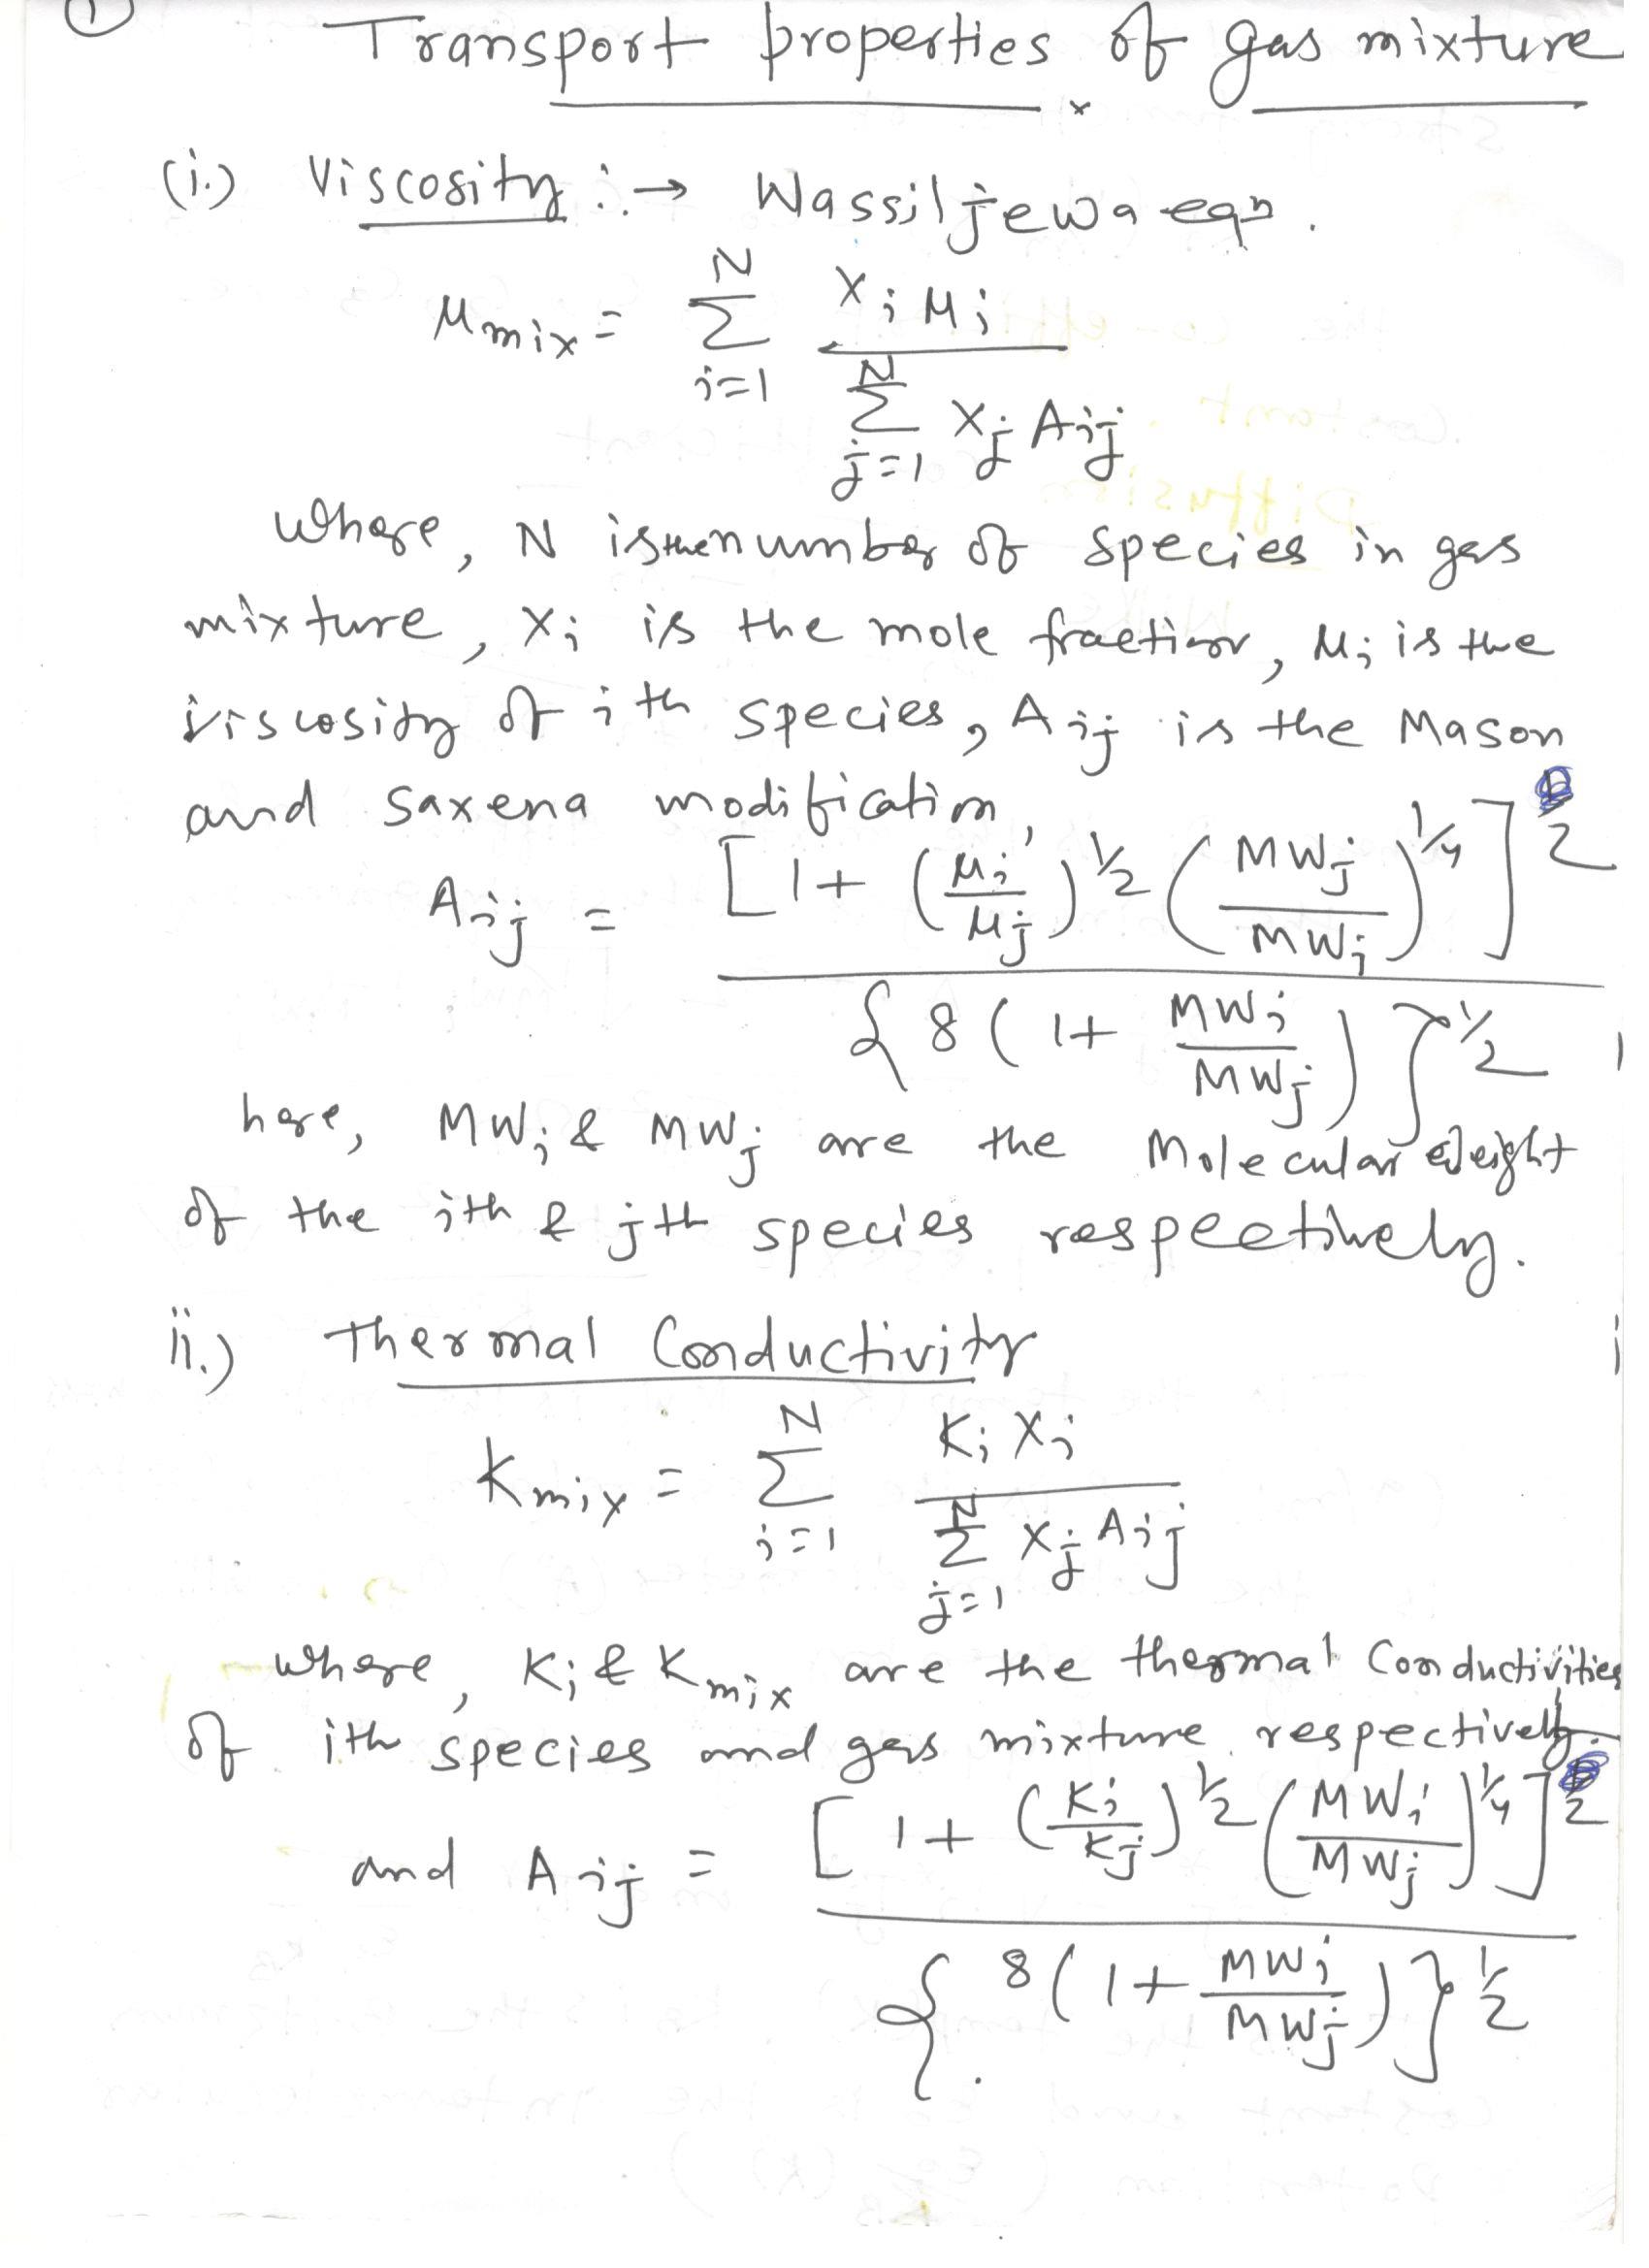 ①
Transport properties of gas mixture
(i.) Viscosity :→ Wassiljewa eqn.
μmix = Σ_{i=1}^{N} (Xi μi) / (Σ_{j=1}^{N} Xj Aij)
where, N is the number of species in gas
mixture, Xi is the mole fraction, μi is the
viscosity of ith species, Aij is the Mason
and Saxena modification,
Aij = [1 + (μi/μj)^{1/2} (MWj/MWi)^{1/4}]^2 / {8(1 + MWi/MWj)}^{1/2}
here, MWi & MWj are the Molecular Weight
of the ith & jth species respectively.
ii.) Thermal Conductivity
Kmix = Σ_{i=1}^{N} (Ki Xi) / (Σ_{j=1}^{N} Xj Aij)
where, Ki & Kmix are the thermal Conductivities
of ith species and gas mixture respectively.
and Aij = [1 + (Ki/Kj)^{1/2} (MWi/MWj)^{1/4}]^2 / {8(1 + MWi/MWj)}^{1/2}